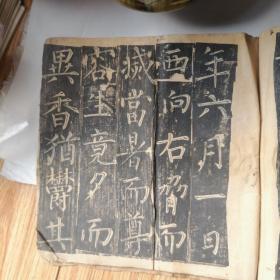 年六月一日
西向右脅而
滅當暑而尊
容生竟夕而
異香猶鬱其